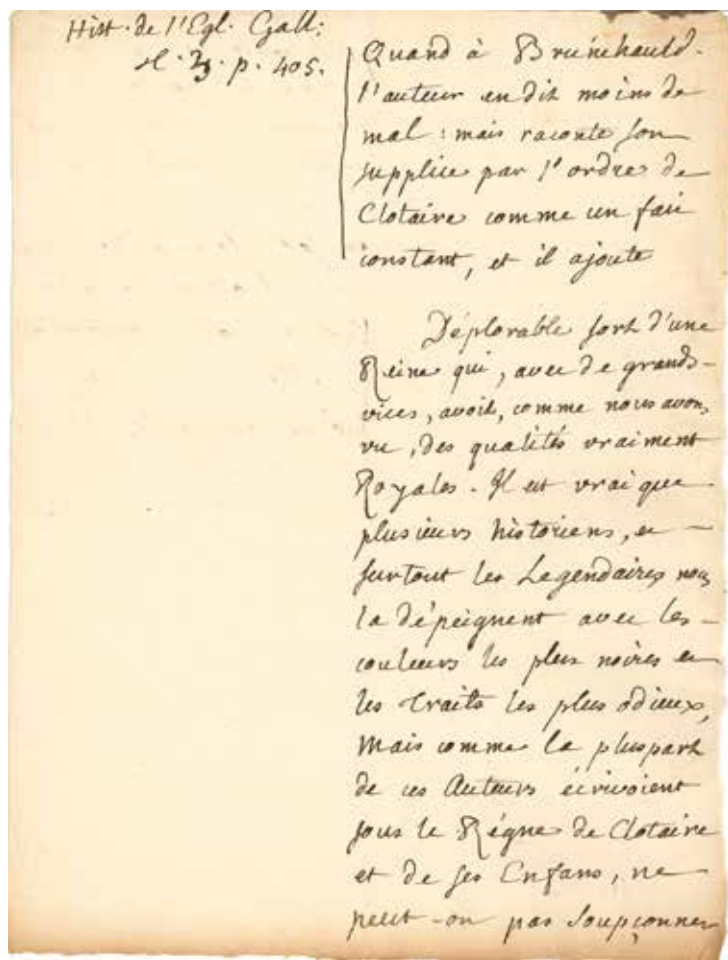 Hist. de l'Egl. Gall:
t. 3. p. 405.
Quand à Brunehauld.
l'auteur en dit moins de
mal : mais raconte son
supplice par l'ordre de
Clotaire comme un fait
constant, et il ajoute
Déplorable sort d'une
Reine qui, avec de grands
vices, avoit, comme nous avons
vu, des qualités vraiment
Royales. Il est vrai que
plusieurs historiens, et
surtout les Legendaires nous
la dépeignent avec les
couleurs les plus noires et
les traits les plus odieux,
Mais comme la pluspart
de ces Auteurs écrivoient
sous le Régne de Clotaire
et de ses Enfans, ne
peut-on pas soupçonner